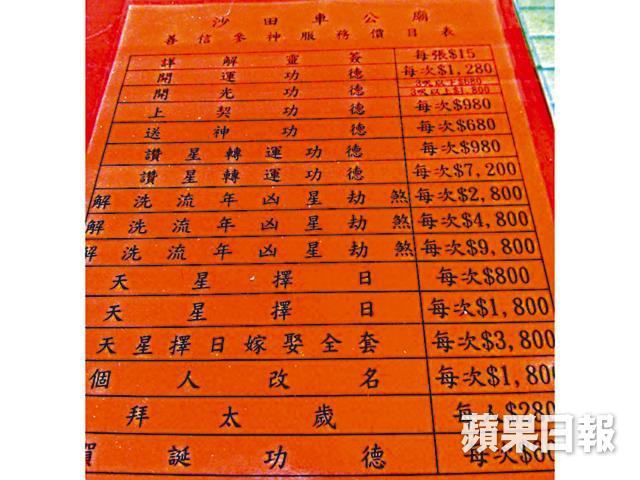 沙田車公廟
善信參神服務價目表
詳解靈簽 每張$15
開運功德 每次$1,280
開光功德 3吋以上$1,800
上契功德 每次$980
送神功德 每次$680
讚星轉運功德 每次$980
讚星轉運功德 每次$7,200
解洗流年凶星劫煞 每次$2,800
解洗流年凶星劫煞 每次$4,800
解洗流年凶星劫煞 每次$9,800
天星擇日 每次$800
天星擇日 每次$1,800
天星擇日嫁娶全套 每次$3,800
個人改名 每次$1,800
拜太歲 每次$280
賀誕功德 每次
蘋果日報